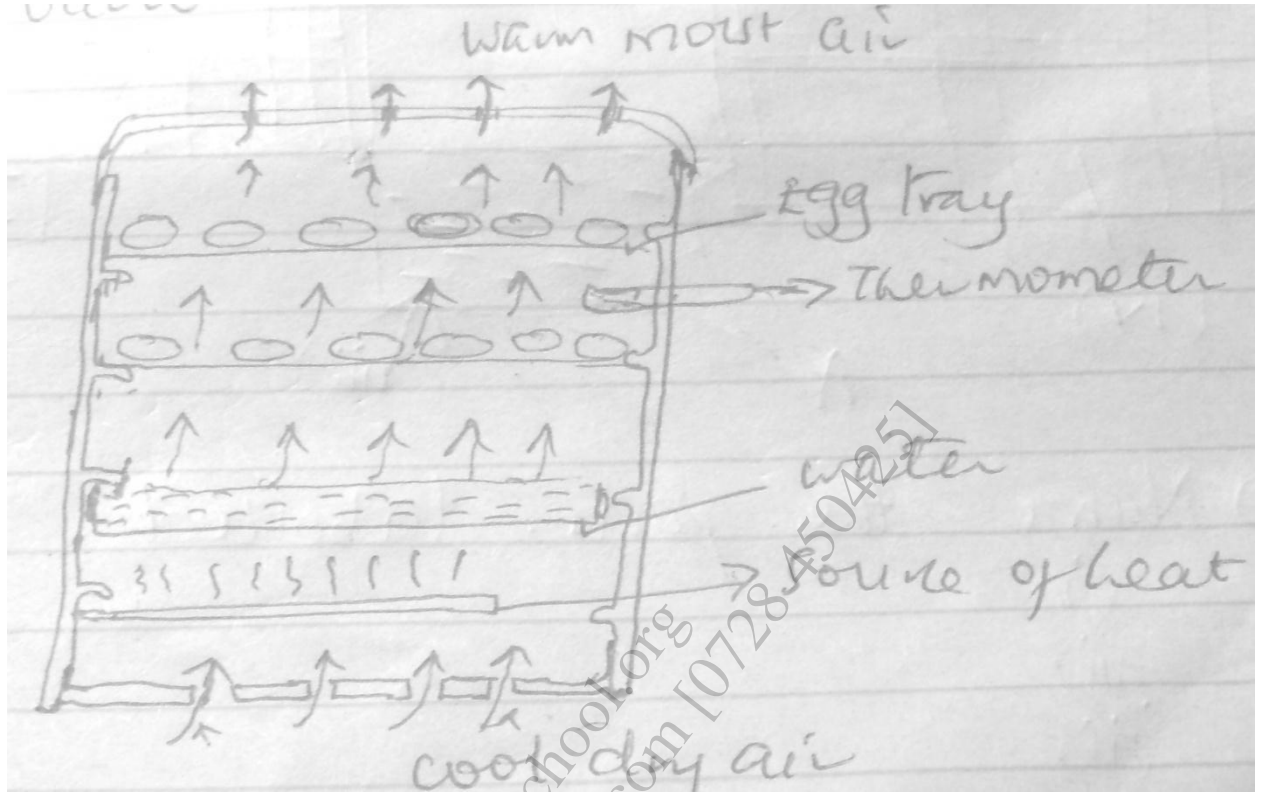 Warm moist air
Egg tray
Thermometer
water
Source of heat
cool dry air
chool.org
com [0728 450425]